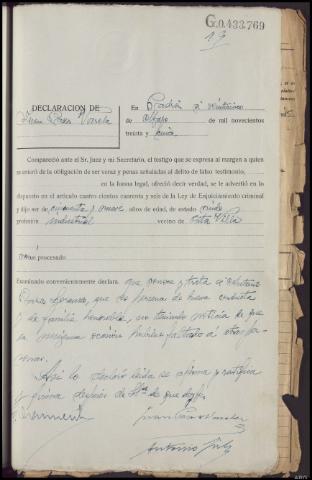 G.0.433.769
19
DECLARACION DE
Juan Varela
En Padrón a veinticinco
de Mayo de mil novecientos
treinta y cinco
Compareció ante el Sr. Juez y mi Secretario, el testigo que se expresa al margen a quien
se enteró de la obligación de ser veraz y penas señaladas al delito de falso testimonio,
en la forma legal, ofreció decir verdad, se le advirtió en lo
dispuesto en el artículo cuatro cientos cuarenta y seis de la Ley de Enjuiciamiento criminal
y dijo ser de cincuenta y nueve años de edad, de estado viudo
profesión industrial vecino de esta Villa
procesado
Examinado convenientemente declara que conoce y trata a
que es persona de buena conducta
y de familia honorable, no teniendo noticia de que
en ninguna ocasión hubiese faltado a otras per-
sonas.
Así lo declaró leída se afirma y ratifica
y firma después de Sª. de que doy fe.
Antonio